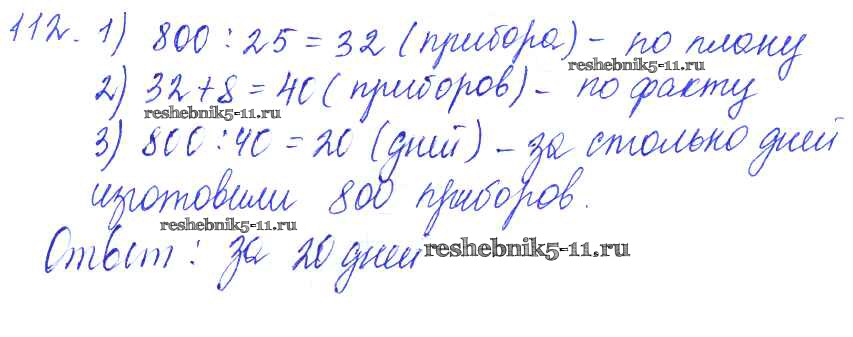 112. 1) 800 : 25 = 32 (прибора) – по плану
reshebnik5-11.ru
2) 32 + 8 = 40 (приборов) – по факту
reshebnik5-11.ru
3) 800 : 40 = 20 (дней) – за столько дней
изготовили 800 приборов.
reshebnik5-11.ru
Ответ: за 20 дней
reshebnik5-11.ru